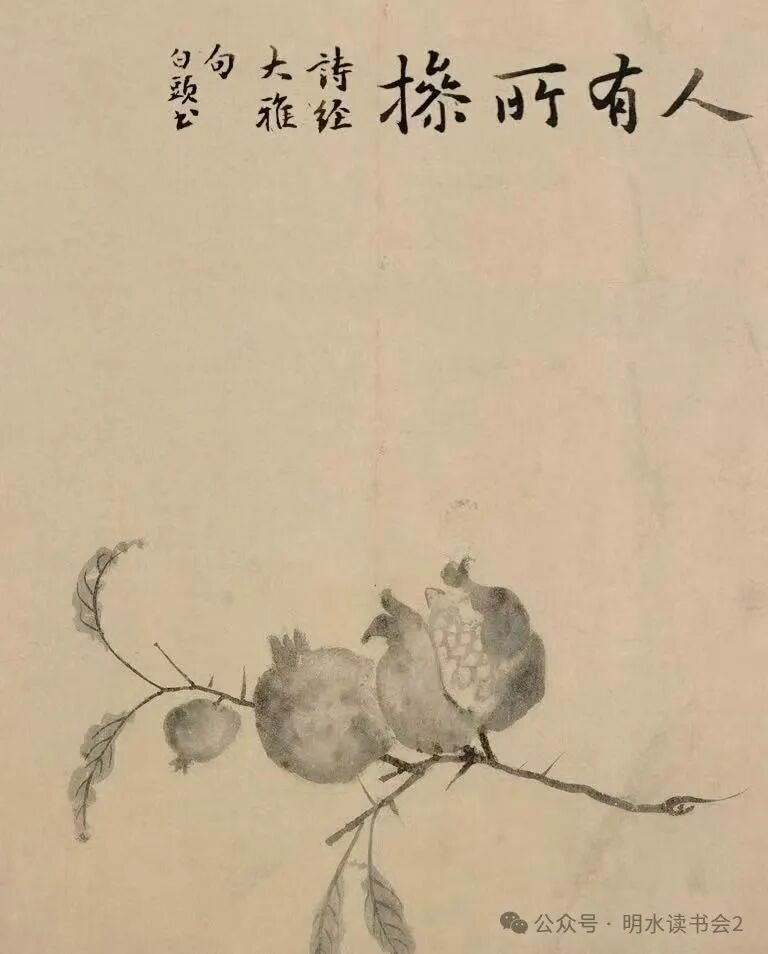 人有所操
詩经
大雅
句
白頭书
公众号·明水读书会2